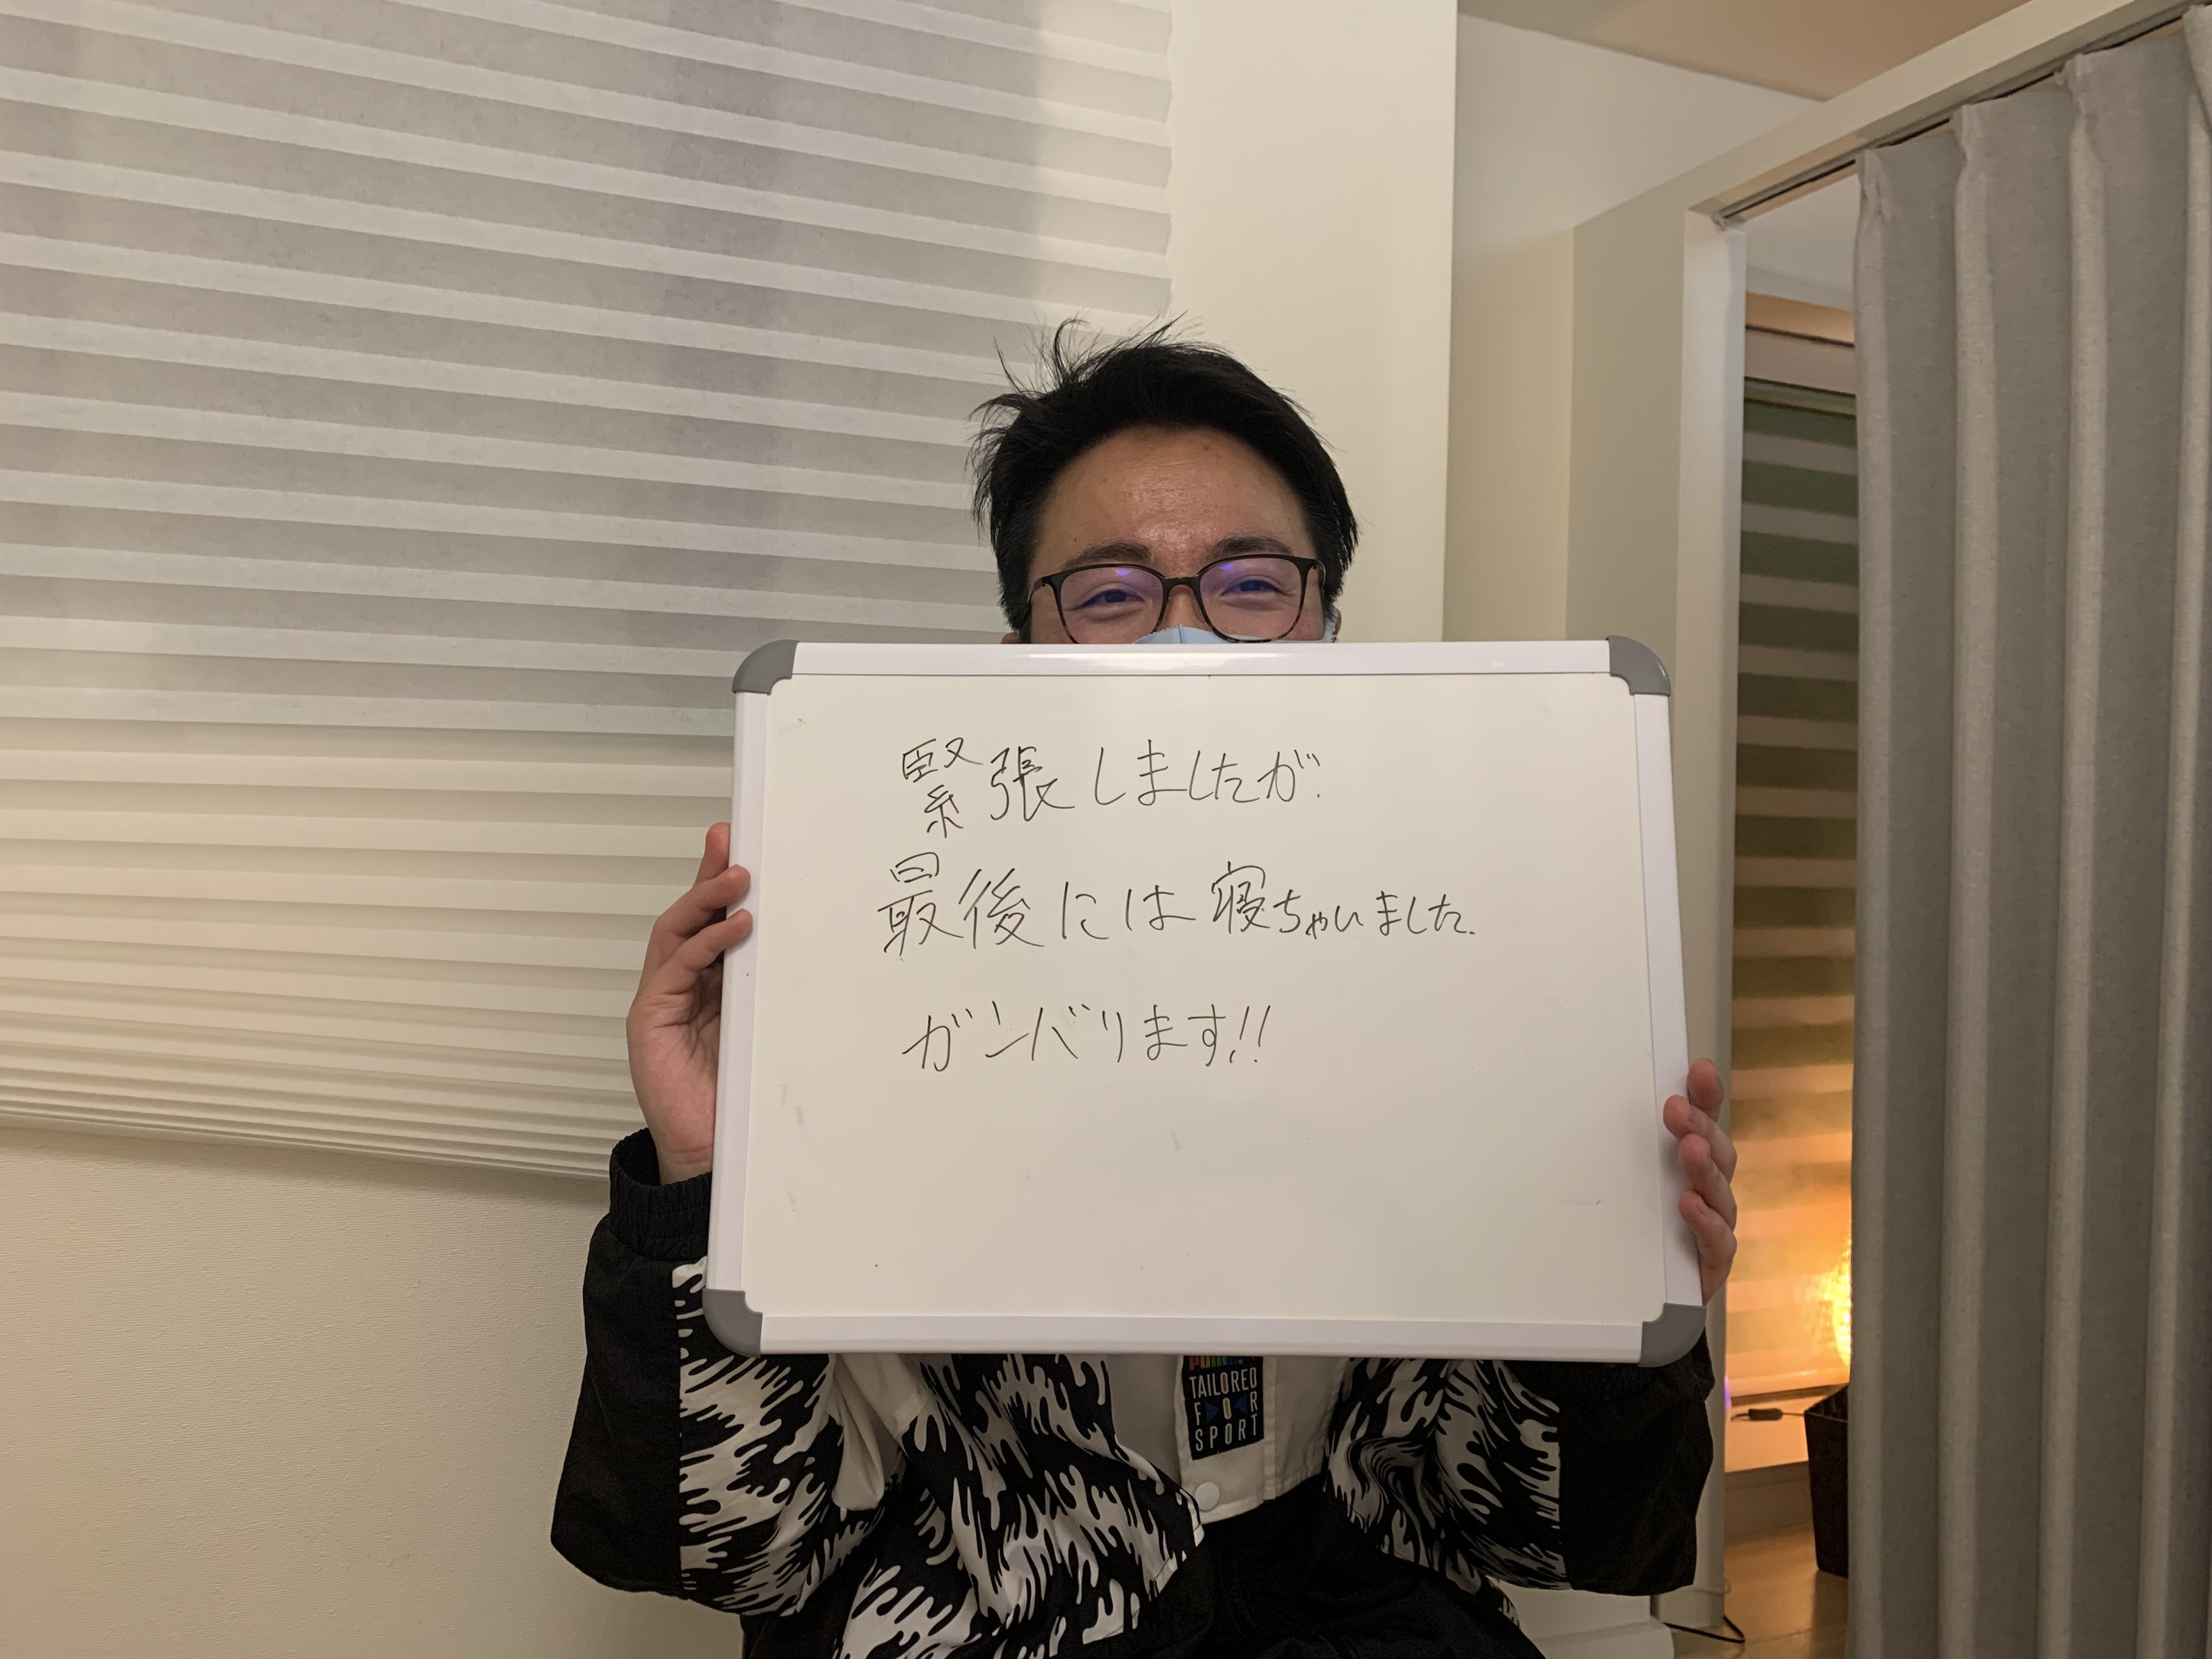 緊張しましたが、
最後には寝ちゃいました。
ガンバります!!
PUMA
TAILORED
FOR
SPORT